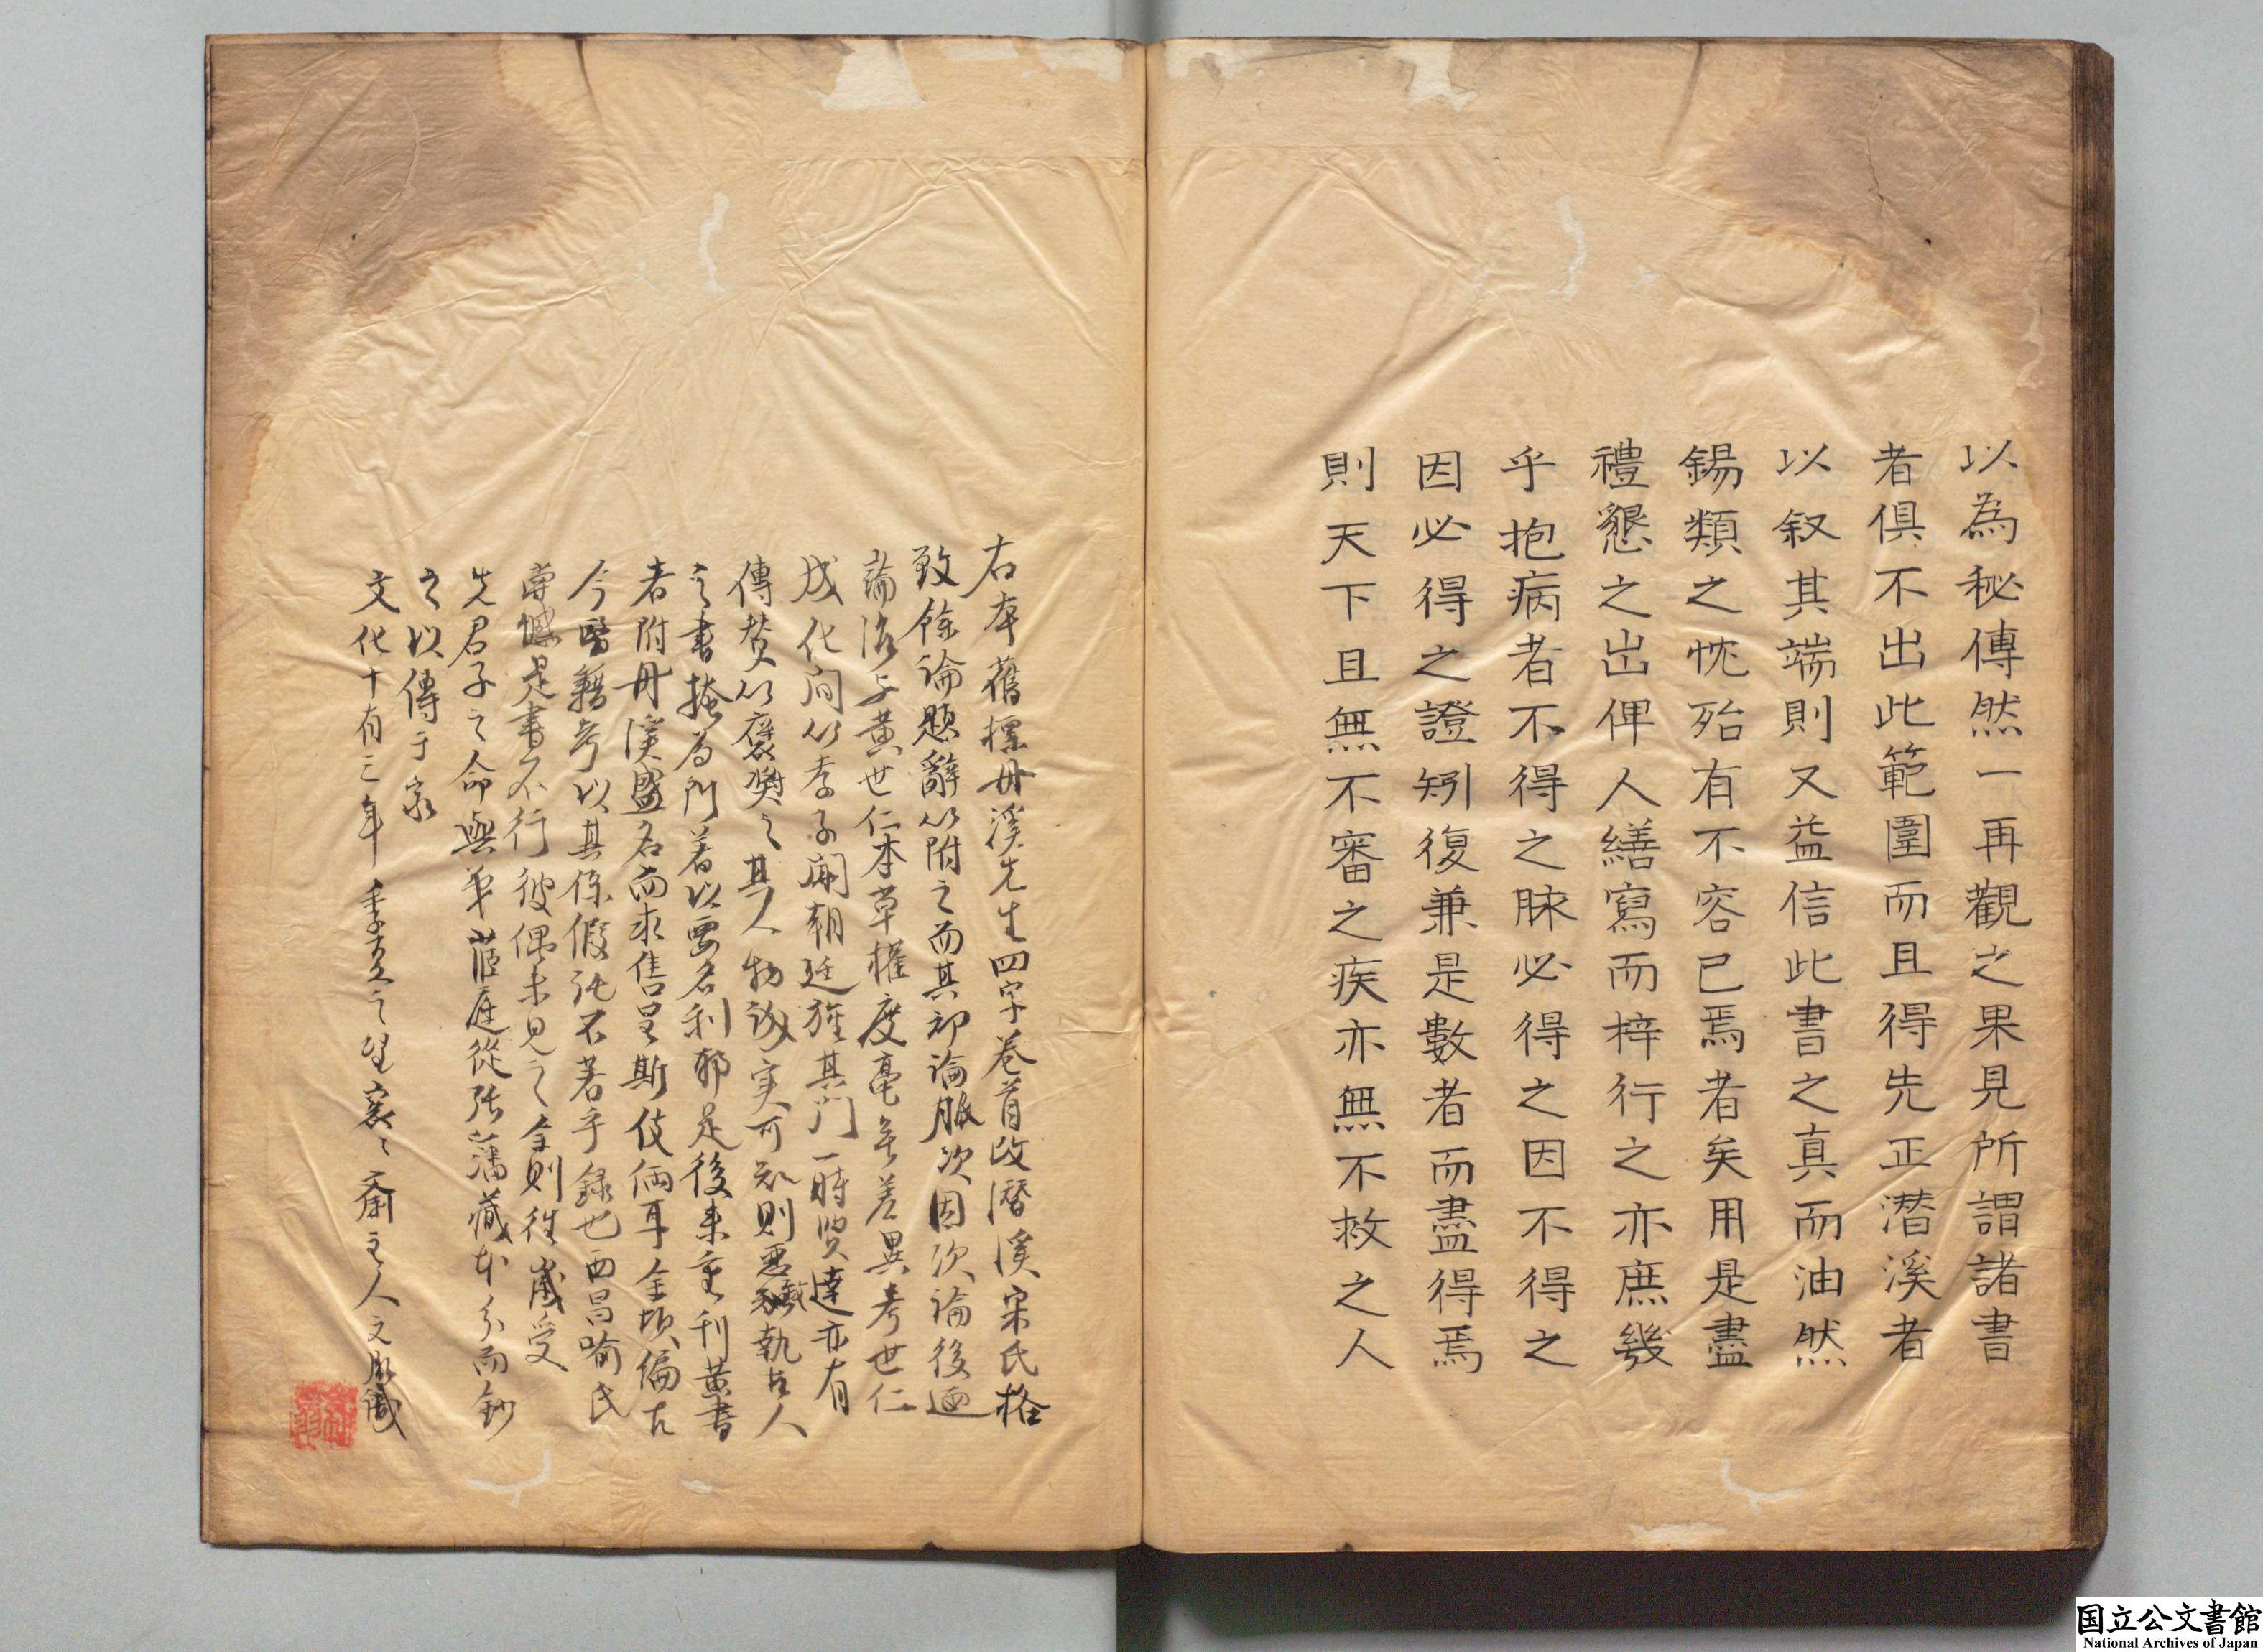 以為秘傳然一再觀之果見所謂諸書
者俱不出此範圍而且得先正潛溪者
以叙其端則又益信此書之真而油然
錫類之忱殆有不容已焉者矣用是盡
禮懇之出俾人繕寫而梓行之亦庶幾
乎抱病者不得之脉必得之因不得之
因必得之證矧復兼是數者而盡得焉
則天下且無不審之疾亦無不救之人
右本舊標丹溪先生四字卷首改潛溪宋氏格
致餘論題辭以附之而其初論脈次因次論後迺
論治與黃世仁本草權度毫無差異考世仁
成化間以孝子聞朝廷旌其門一時賢達亦有
傳贊以褒奬之其人物誠実可知則惡執古人
之書掩為門著以要名利耶是後来重刊黃書
者附丹溪盛名而求售呈斯伎倆耳余頃編古
今醫籍考以其係假託不著手錄也西昌喻氏
嘗憾是書不行彼偶未見之余則徃歲受
先君子之命與弟茝庭從張藩藏本分而鈔
之以傳于家
文化十有三年季夏之望 主人文識
国立公文書館
National Archives of Japan